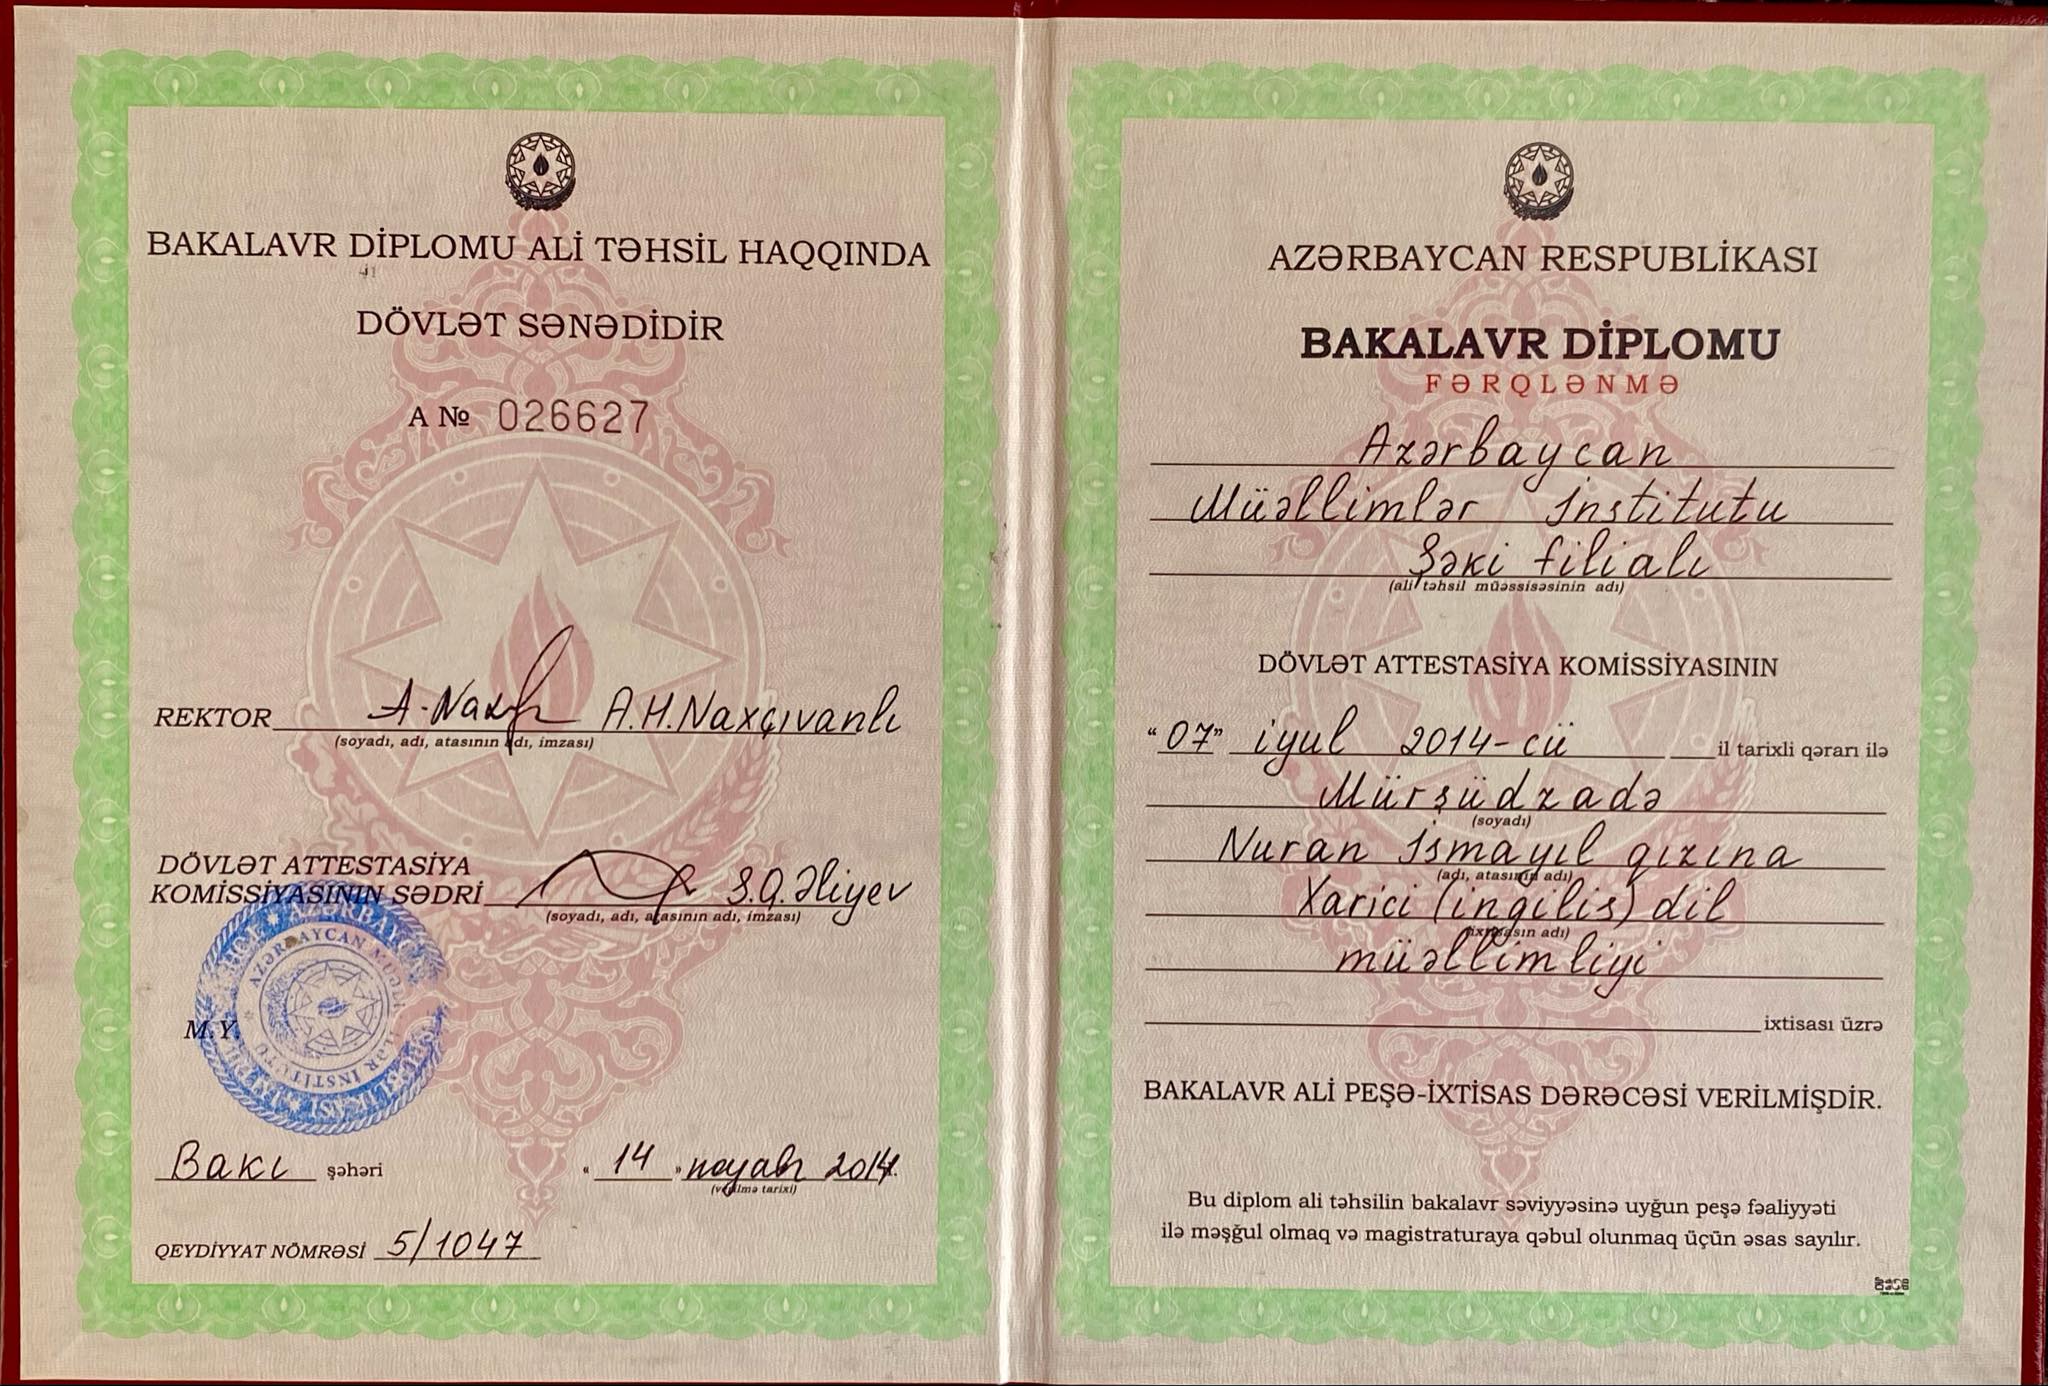 BAKALAVR DİPLOMU ALİ TƏHSİL HAQQINDA
DÖVLƏT SƏNƏDİDİR
A № 026627
REKTOR A.H.Naxçıvanlı
(soyadı, adı, atasının adı, imzası)
DÖVLƏT ATTESTASİYA
KOMISSİYASININ SƏDRİ Ş.Q.Əliyev
(soyadı, adı, atasının adı, imzası)
AZƏRBAYCAN
İNSTİTUTU
M.Y.
Bakı şəhəri « 14 » noyabr 2014.
(verilmə tarixi)
QEYDİYYAT NÖMRƏSİ 5/1047
AZƏRBAYCAN RESPUBLİKASI
BAKALAVR DİPLOMU
FƏRQLƏNMƏ
Azərbaycan
Müəllimlər İnstitutu
Şəki filialı
(ali təhsil müəssisəsinin adı)
DÖVLƏT ATTESTASİYA KOMİSSİYASININ
“07” iyul 2014-cü il tarixli qərarı ilə
Mürşüdzadə
(soyadı)
Nuran İsmayıl qızına
(adı, atasının adı)
Xarici (ingilis) dil
(ixtisasın adı)
müəllimliyi
ixtisası üzrə
BAKALAVR ALİ PEŞƏ-İXTİSAS DƏRƏCƏSİ VERİLMİŞDİR.
Bu diplom ali təhsilin bakalavr səviyyəsinə uyğun peşə fəaliyyəti
ilə məşğul olmaq və magistraturaya qəbul olunmaq üçün əsas sayılır.